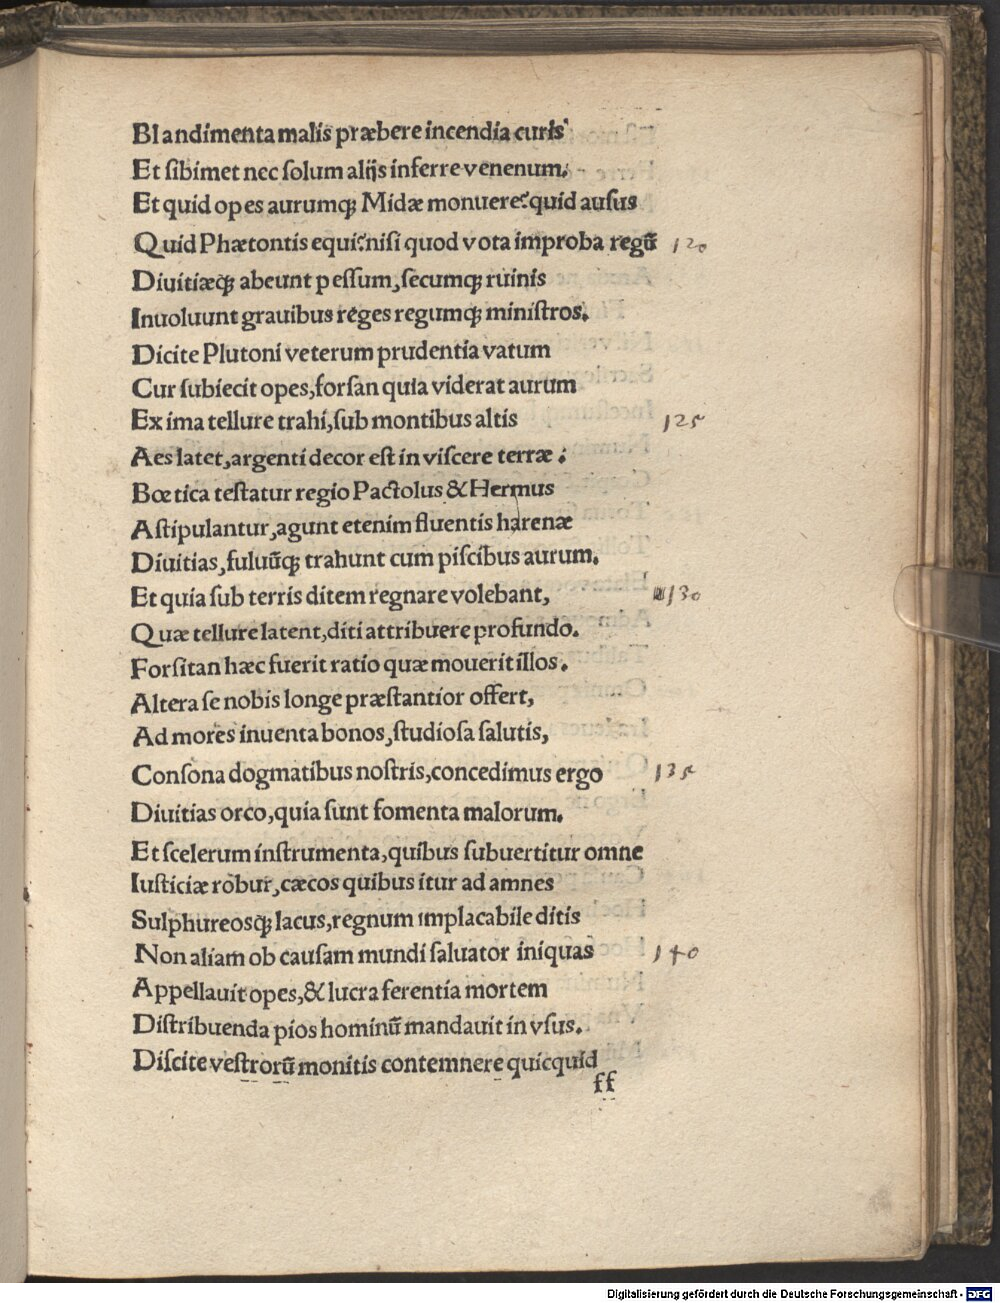 Blandimenta malis præbere incendia curis
Et ſibimet nec ſolum alijs inferre venenum.
Et quid opes aurumꝗ Midæ monuere? quid auſus
Quid Phætontis equi? niſi quod vota improba regū 120
Diuitiæꝗ abeunt peſſum, ſecumꝗ ruinis
Inuoluunt grauibus reges regumꝗ miniſtros.
Dicite Plutoni veterum prudentia vatum
Cur ſubiecit opes, forſan quia viderat aurum
Ex ima tellure trahi, ſub montibus altis 125
Aes latet, argenti decor eſt in viſcere terræ :
Bœtica teſtatur regio Pactolus & Hermus
Aſtipulantur, agunt etenim fluentis harenæ
Diuitias, fuluūꝗ trahunt cum piſcibus aurum.
Et quia ſub terris ditem regnare volebant, 130
Quæ tellure latent, diti attribuere profundo.
Forſitan hæc fuerit ratio quæ mouerit illos.
Altera ſe nobis longe præſtantior offert,
Ad mores inuenta bonos, ſtudioſa ſalutis,
Conſona dogmatibus noſtris, concedimus ergo 135
Diuitias orco, quia ſunt fomenta malorum.
Et ſcelerum inſtrumenta, quibus ſubuertitur omne
Iuſticiæ robur, cæcos quibus itur ad amnes
Sulphureosꝗ lacus, regnum implacabile ditis
Non aliam ob cauſam mundi ſaluator iniquas 140
Appellauit opes, & lucra ferentia mortem
Diſtribuenda pios hominū mandauit in vſus.
Diſcite veſtrorū monitis contemnere quicquid
ff
Digitalisierung gefördert durch die Deutsche Forschungsgemeinschaft - DFG